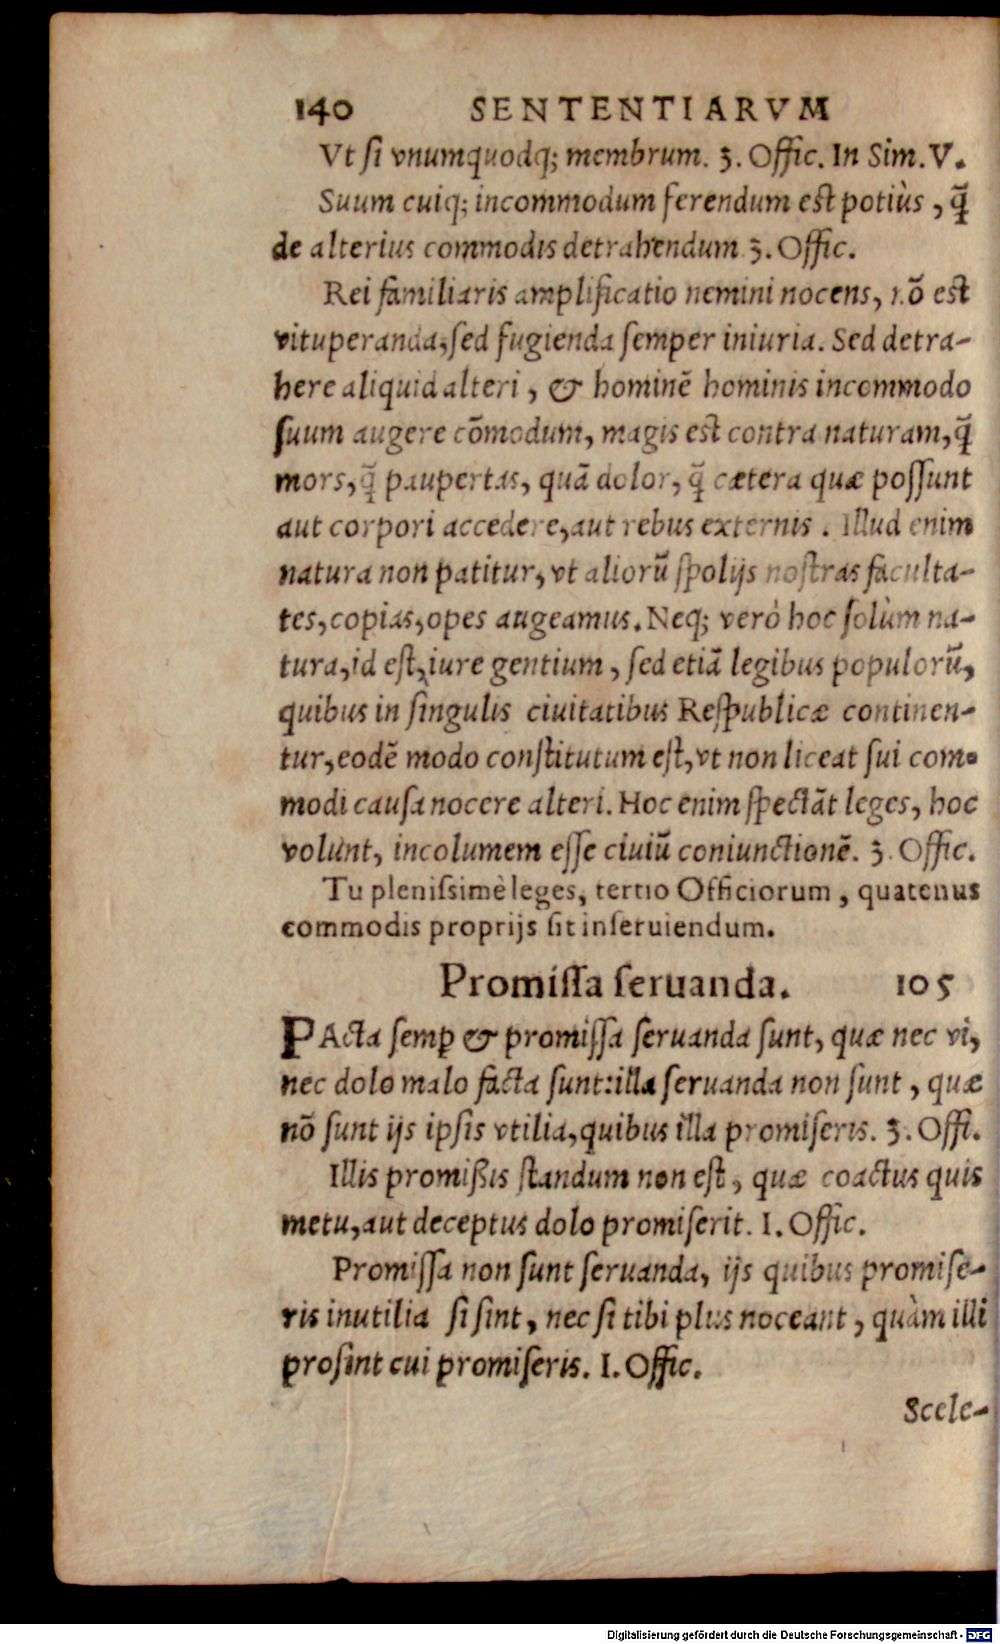 140 SENTENTIARVM
Vt ſi vnumquodq; membrum. 3. Offic. In Sim. V.
Suum cuiq; incommodum ferendum eſt potiùs, q̃
de alterius commodis detrahendum 3. Offic.
Rei familiaris amplificatio nemini nocens, nõ eſt
vituperanda, ſed fugienda ſemper iniuria. Sed detra-
here aliquid alteri, & hominē hominis incommodo
ſuum augere cõmodum, magis eſt contra naturam, q̃
mors, q̃ paupertas, quã dolor, q̃ cætera quæ poſſunt
aut corpori accedere, aut rebus externis. Illud enim
natura non patitur, vt aliorũ ſpolijs noſtras faculta-
tes, copias, opes augeamus. Neq; verò hoc ſolùm na-
tura, id eſt, iure gentium, ſed etiã legibus populorũ,
quibus in ſingulis ciuitatibus Reſpublicæ continen-
tur, eodē modo conſtitutum eſt, vt non liceat ſui com-
modi cauſa nocere alteri. Hoc enim ſpectãt leges, hoc
volunt, incolumem eſſe ciuiũ coniunctionē. 3. Offic.
Tu pleniſsimè leges, tertio Officiorum, quatenus
commodis proprijs ſit inſeruiendum.
Promiſſa ſeruanda. 105
PActa ſemꝑ & promiſſa ſeruanda ſunt, quæ nec vi,
nec dolo malo facta ſunt: illa ſeruanda non ſunt, quæ
nõ ſunt ijs ipſis vtilia, quibus illa promiſeris. 3. Offi.
Illis promißis ſtandum non eſt, quæ coactus quis
metu, aut deceptus dolo promiſerit. I. Offic.
Promiſſa non ſunt ſeruanda, ijs quibus promiſe-
ris inutilia ſi ſint, nec ſi tibi plus noceant, quàm illi
proſint cui promiſeris. I. Offic.
Scele-
Digitalisierung gefördert durch die Deutsche Forschungsgemeinschaft - DFG